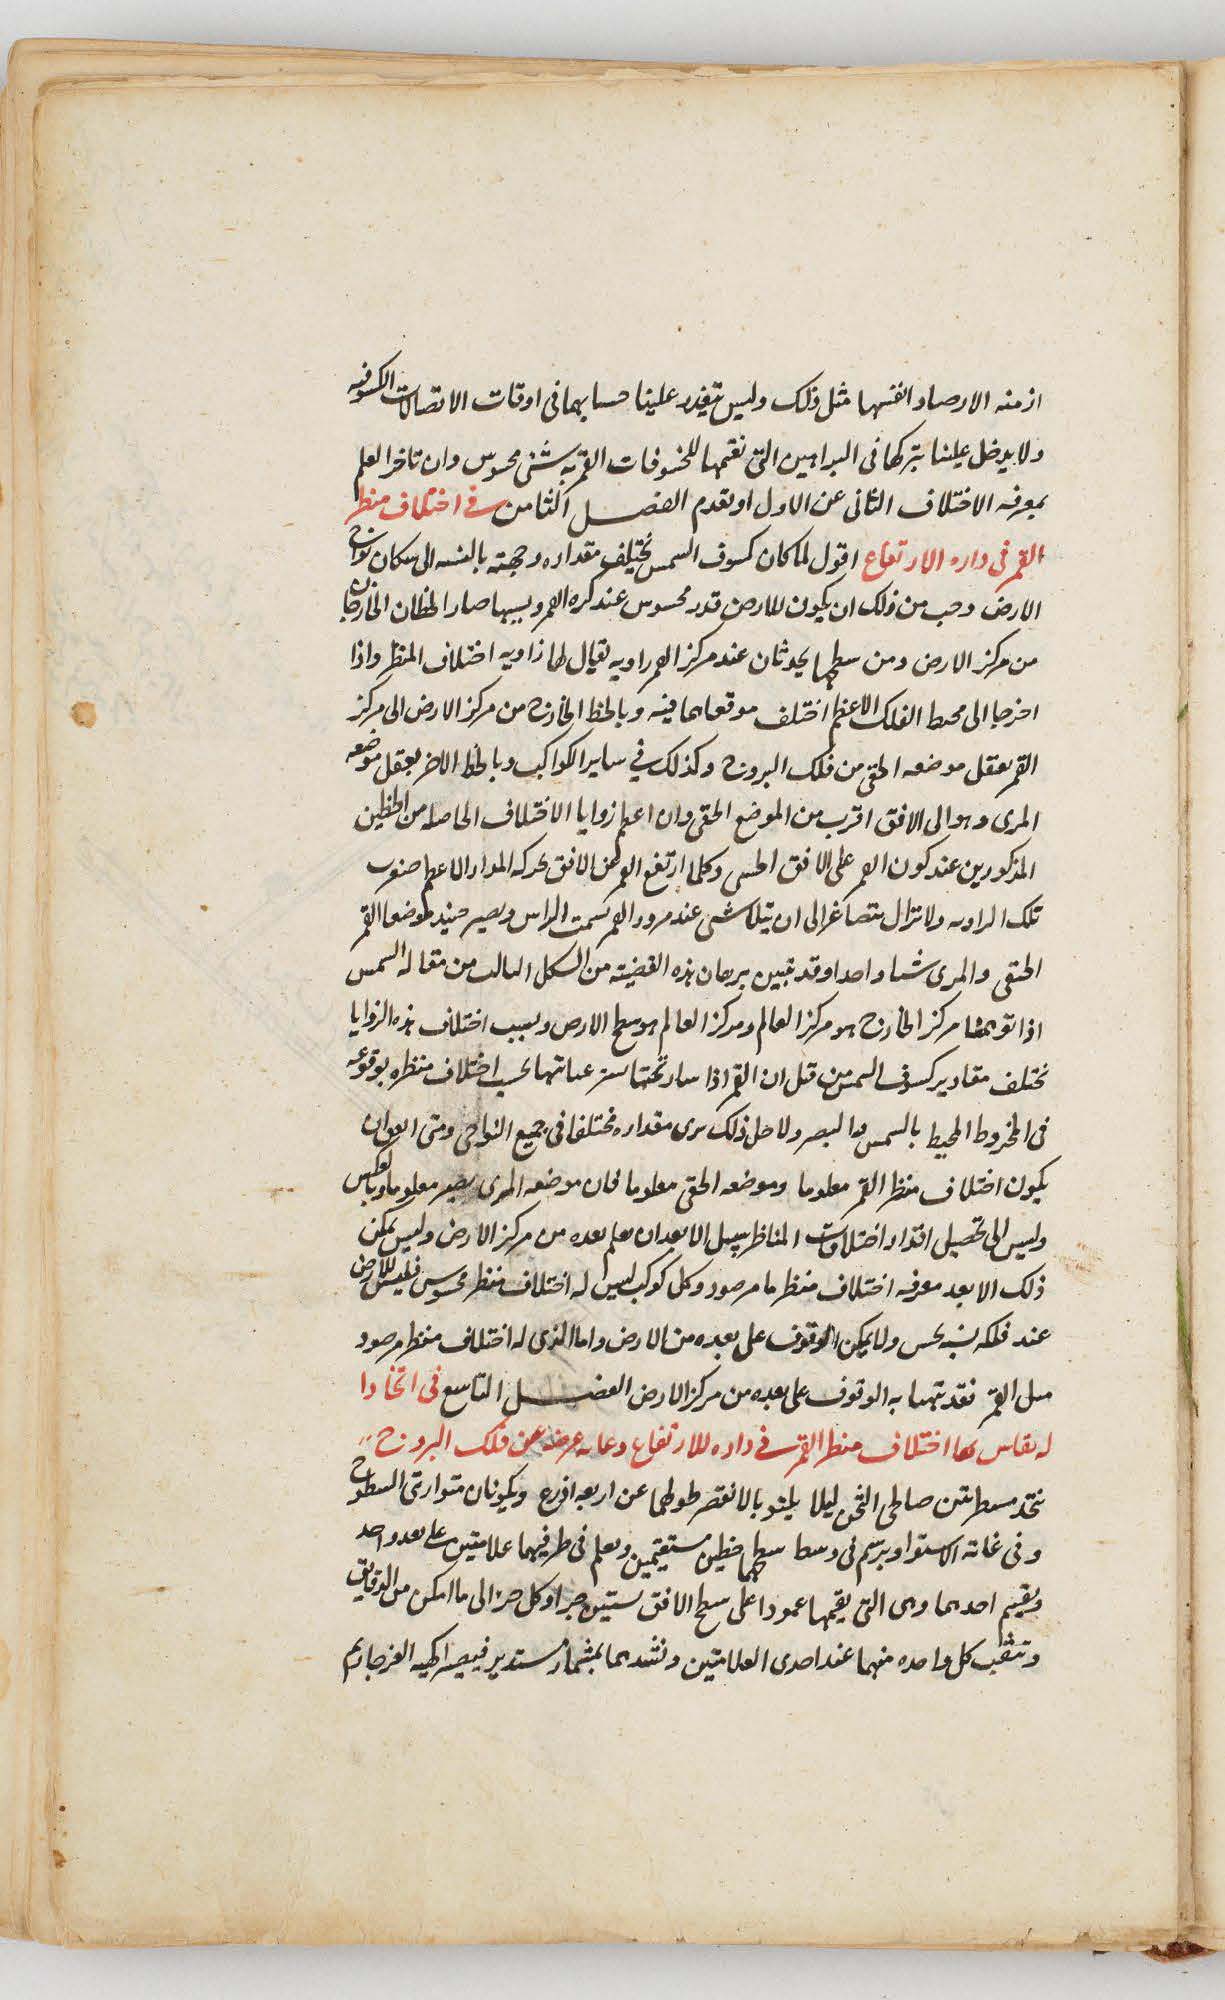 ازمنه الارصاد انفسها مثل ذلك وليس يتعذر علينا حسابهما فى اوقات الاتصالات الكسوفيه
ولا يدخل علينا بتركها فى البراهين التى نقيمها للخسوفات القمريه شئ محسوس وان تاخر العلم
بمعرفه الاختلاف الثانى عن الاول او تقدم الفصل الثامن فى اختلاف منظر
القمر فى دايره الارتفاع اقول لما كان كسوف الشمس يختلف مقداره وجهته بالنسبه الى سكان نواحى
الارض وجب من ذلك ان يكون للارض قدر محسوس عند كره القمر وبسببها صار الخطان الخارجان
من مركز الارض ومن سطحها يحدثان عند مركز القمر زاويه يقال لها زاويه اختلاف المنظر واذا
اخرجا الى محيط الفلك الاعظم اختلف موقعاهما فيه وبالخط الخارج من مركز الارض الى مركز
القمر يعقل موضعه الحقى من فلك البروج وكذلك فى ساير الكواكب وبالخط الاخر يعقل موضعه
المرى وهو الى الافق اقرب من الموضع الحقى وان اعظم زوايا الاختلاف الحاصله من الخطين
المذكورين عند كون القمر على الافق الحسى وكلما ارتفع القمر عن الافق بحركه المدار الاعظم صغرت
تلك الزاويه ولا تزال تتصاغر الى ان يتلاشى عند مرور القمر بسمت الراس ويصير حينيذ موضعا القمر
الحقى والمرى شيا واحدا وقد تبين برهان هذه القضيه من الشكل الثالث من مقاله الشمس
اذا توهمنا مركز الخارج هو مركز العالم ومركز العالم هو سطح الارض وبسبب اختلاف هذه الزوايا
يختلف مقادير كسوف الشمس من قبل ان القمر اذا سار تحتها ستر عنا منها بحسب اختلاف منظره بوقوعه
فى المخروط المحيط بالشمس والبصر ولاجل ذلك يرى مقداره مختلفا فى جميع النواحى ومتى اتفق ان
يكون اختلاف منظر القمر معلوما وموضعه الحقى معلوما فان موضعه المرى يصير معلوما وبالعكس
وليس الى تحصيل اقدار اختلافات المناظر سبيل الا بعد ان يعلم بعده من مركز الارض وليس يمكن
ذلك الا بعد معرفه اختلاف منظر ما مرصود وكل كوكب ليس له اختلاف منظر محسوس فليس للارض
عند فلكه نسبه تحس ولا يمكن الوقوف على بعده من الارض واما الذى له اختلاف منظر مرصود
مثل القمر فقد يتهيا به الوقوف على بعده من مركز الارض الفصل التاسع فى اتخاذ ا
له يقاس بها اختلاف منظر القمر فى دايره للارتفاع وغايه عرضه عن فلك البروج
نتخذ مسطرتين صالحى الثخن ليلا يلتويا لا نقصر طولهما عن اربعه اذرع ويكونان متوازى السطوح
وفى غايه الاستوا ويرسم فى وسط سطحهما خطين مستقيمين ونعلم فى طرفيهما علامتين على بعد واحد
ونقسم احدهما وهى التى نقيمها عمودا على سطح الافق بستين جزا وكل جز الى ما امكن من الدقايق
ونثقب كل واحده منهما عند احدى العلامتين ونشدهما بمسمار مستدير فيصير لكيه الفرجاريم